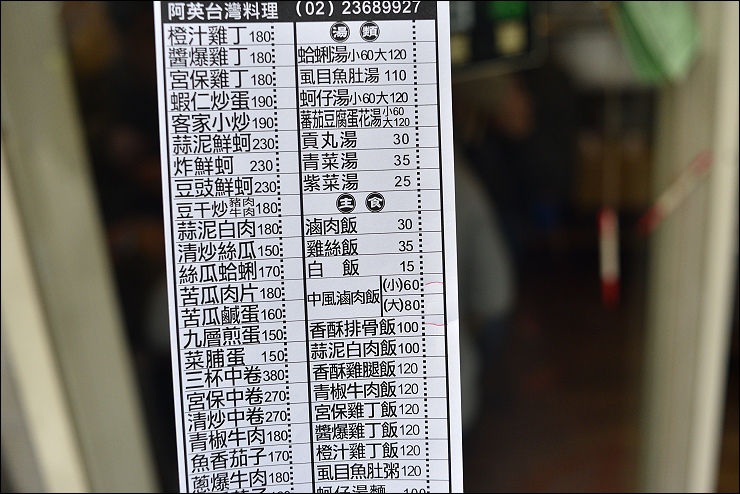 阿英台灣料理 (02) 23689927
橙汁雞丁180
醬爆雞丁180
宮保雞丁180
蝦仁炒蛋190
客家小炒190
蒜泥鮮蚵230
炸鮮蚵 230
豆豉鮮蚵230
豆干炒豬肉牛肉180
蒜泥白肉180
清炒絲瓜150
絲瓜蛤蜊170
苦瓜肉片180
苦瓜鹹蛋160
九層煎蛋150
菜脯蛋 150
三杯中卷380
宮保中卷270
清炒中卷270
青椒牛肉180
魚香茄子170
蔥爆牛肉180
湯類
蛤蜊湯小60大120
虱目魚肚湯 110
蚵仔湯小60大120
蕃茄豆腐蛋花湯小60大120
貢丸湯 30
青菜湯 35
紫菜湯 25
主食
滷肉飯 30
雞絲飯 35
白 飯 15
中風滷肉飯 (小)60
(大)80
香酥排骨飯100
蒜泥白肉飯100
香酥雞腿飯120
青椒牛肉飯120
宮保雞丁飯120
醬爆雞丁飯120
橙汁雞丁飯120
虱目魚肚粥120
蚵仔湯麵 100